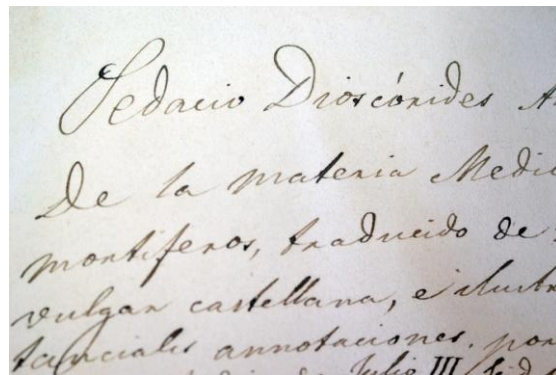 Pedacio Dioscórides A
De la materia Medic
mortiferos, traducido de
vulgar castellana, e ilustr
tanciales annotaciones, por
de Julio III